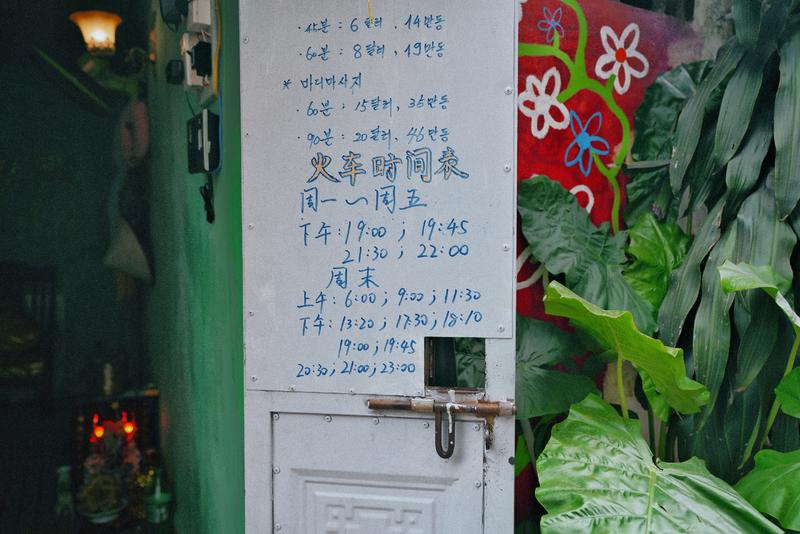 · 45분 : 6 달러, 14만동
· 60분 : 8 달러, 19만동
* 바디마사지
· 60분 : 15달러, 35만동
· 90분 : 20달러, 46만동
火车时间表
周一～周五
下午:19:00 ; 19:45
21:30 ; 22:00
周末
上午:6:00 ; 9:00 ; 11:30
下午:13:20 ; 17:30 ; 18:10
19:00 ; 19:45
20:30 ; 21:00 ; 23:00